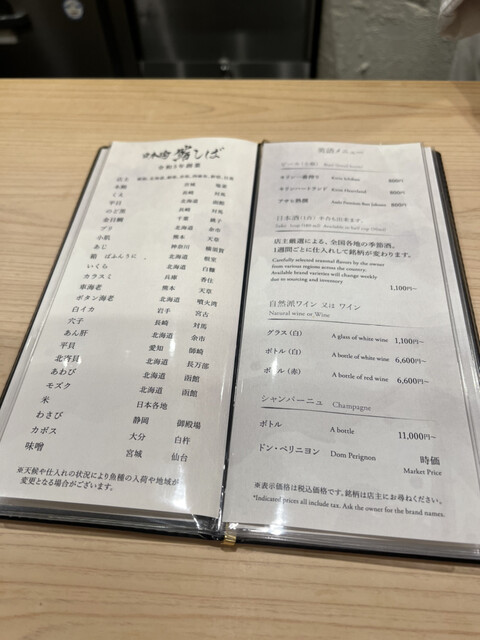 鮨しば
令和5年創業
くえ 長崎 対馬
平目 北海道 函館
のど黒 長崎 対馬
金目鯛 千葉 銚子
ブリ 北海道 余市
小肌 熊本 天草
あじ 神奈川 横須賀
いくら 北海道
カラスミ 兵庫 香住
車海老 熊本 天草
ボタン海老 北海道 噴火湾
白イカ 岩手 宮古
穴子 長崎 対馬
あん肝 北海道 余市
平貝 愛知 師崎
北寄貝 北海道 長万部
あわび 北海道 函館
モズク 北海道 函館
米 日本各地
わさび 静岡 御殿場
カボス 大分 臼杵
味噌 宮城 仙台
※天候や仕入れの状況により魚種の入荷や地域が
変更となる場合がございます。
英語メニュー
キリン一番搾り Kirin Ichiban 800円
キリンハートランド Kirin Heartland 800円
日本酒(1合) 半合も出来ます
Sake 1cup (180ml) Available in half cup (90ml)
店主厳選による、全国各地の季節酒。
1週間ごとに仕入れして銘柄が変わります。
Carefully selected seasonal flavors by the owner
from various regions across the country.
Available brand varieties will change weekly
due to sourcing and inventory
1,100円~
自然派ワイン 又は ワイン
Natural wine or Wine
グラス (白) A glass of white wine 1,100円~
ボトル (白) A bottle of white wine 6,600円~
ボトル (赤) A bottle of red wine 6,600円~
シャンパーニュ Champagne
ボトル A bottle 11,000円~
ドン・ペリニヨン Dom Perignon 時価
Market Price
※表示価格は税込価格です。銘柄は店主にお尋ねください。
*Indicated prices all include tax. Ask the owner for the brand names.